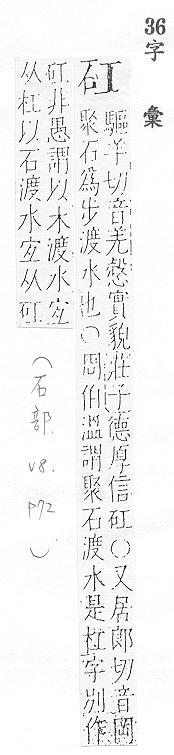 36字彙
矼
驅羊切音羌慤實貌莊子德厚信矼○又居郎切音岡
聚石爲步渡水也○周伯溫謂聚石渡水是杠字別作
矼非愚謂以木渡水宐
从杠以石渡水宐从矼
(石部.V8.P72)